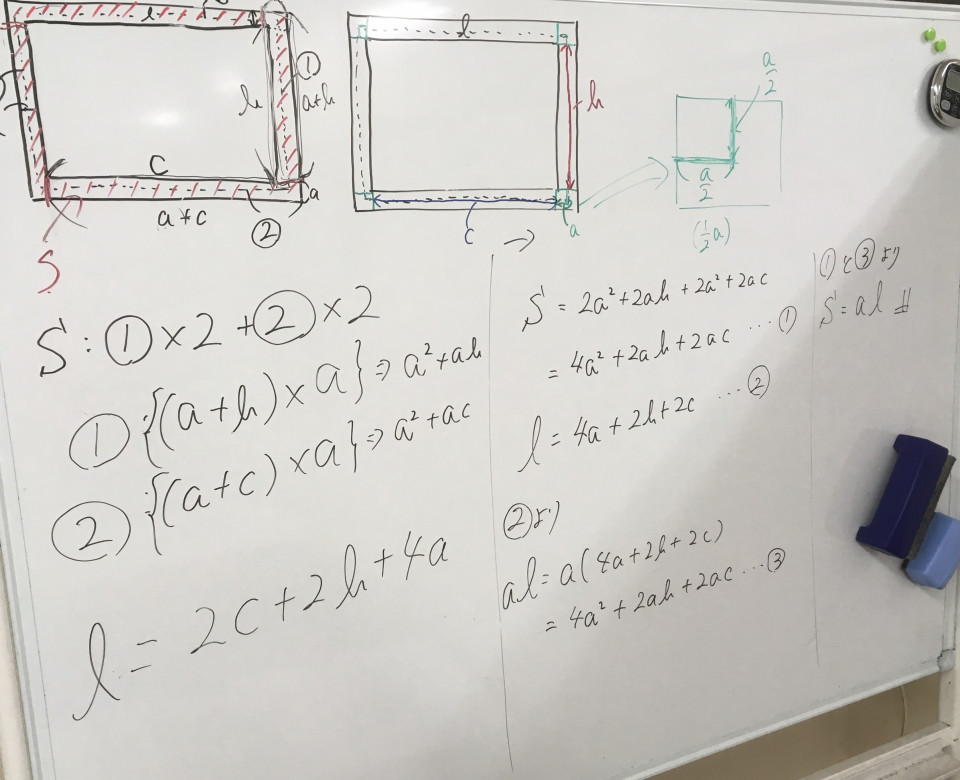 l
①
h
a+h
c
a
a+c
②
S
l
h
c
a
a/2
a/2
(1/2 a)
S : ①×2 + ②×2
① {(a+h)×a} ⇒ a²+ah
② {(a+c)×a} ⇒ a²+ac
l = 2c+2h+4a
S = 2a²+2ah+2a²+2ac
= 4a²+2ah+2ac …①
l = 4a+2h+2c …②
②より
al = a(4a+2h+2c)
= 4a²+2ah+2ac …③
①と③より
S = al